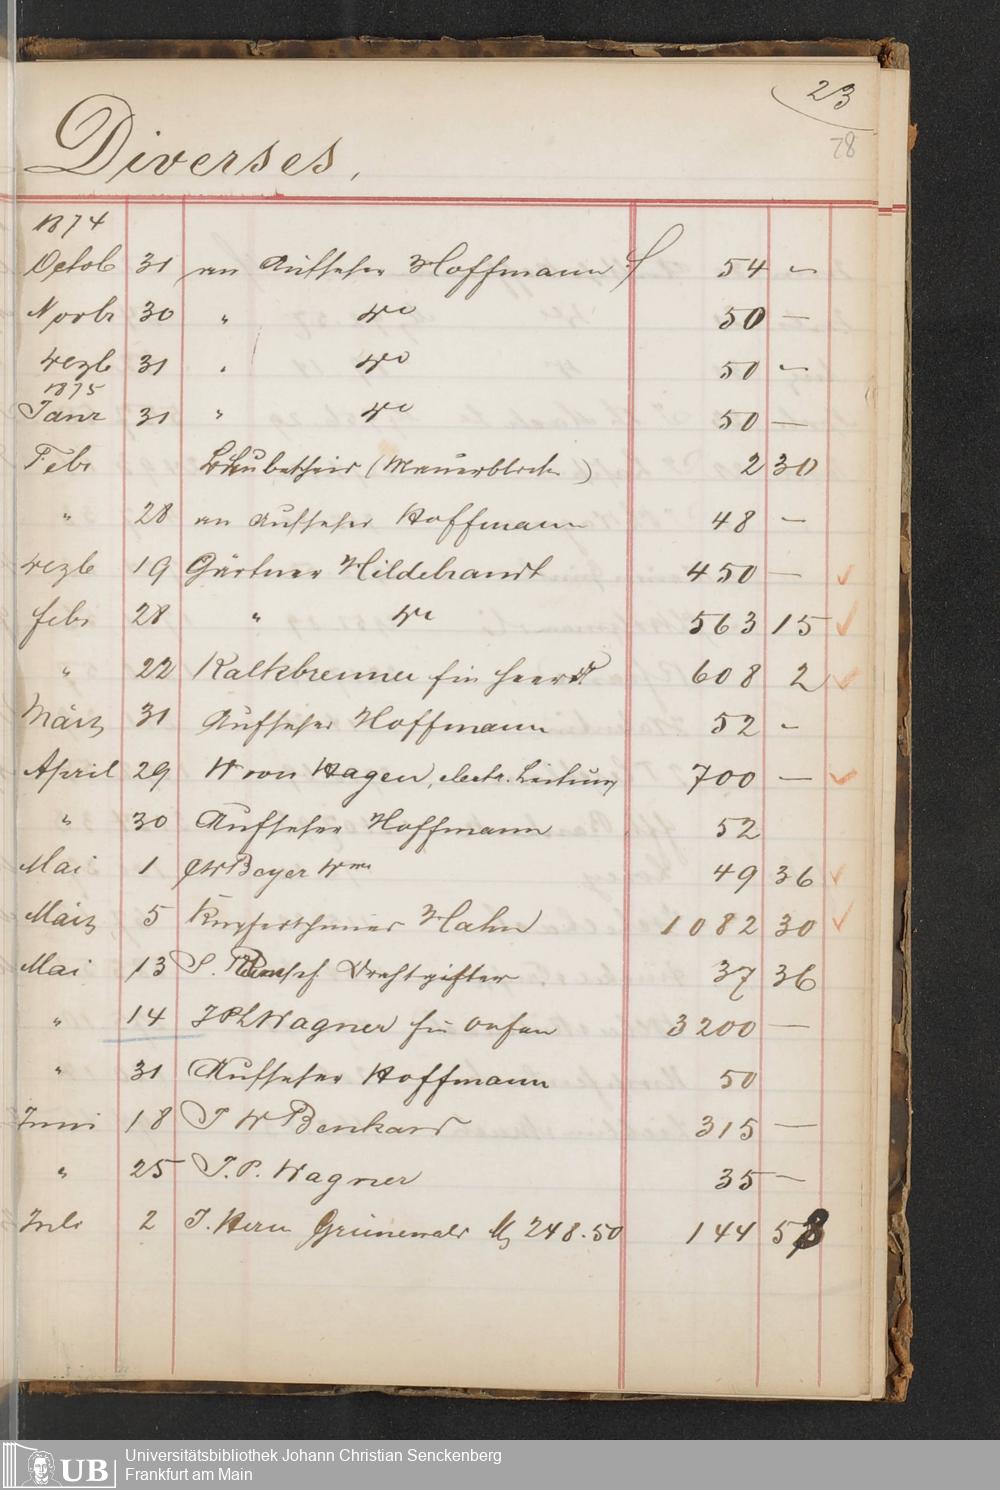 23
78
Diverses,
1874
Octob 31 an Aufseher Hoffmann f 54 —
Novbr 30 " do 50 —
Dezb 31 " do 50 —
1875
Janr 31 " do 50 —
Febr (Mauerblech) 2 30
" 28 an Aufseher Hoffmann 48 —
Dezb 19 Gärtner Hildebrandt 450 —
Febr 28 " do 563 15
" 22 Kalkbrenner für Heerd 608 2
März 31 Aufseher Hoffmann 52 —
April 29 W von Hagen, electr. Leitung 700 —
" 30 Aufseher Hoffmann 52
Mai 1 JW Beyer Wwe 49 36
März 5 Kupferschmied Hahn 1082 30
Mai 13 S. Drahtgitter 37 36
" 14 J Ph Wagner für Oefen 3200 —
" 31 Aufseher Hoffmann 50
Juni 18 J W Benkard 315 —
" 25 J. P. Wagner 35 —
Juli 2 J. Herm Grünewald M 248.50 144 58
UB
Universitätsbibliothek Johann Christian Senckenberg
Frankfurt am Main